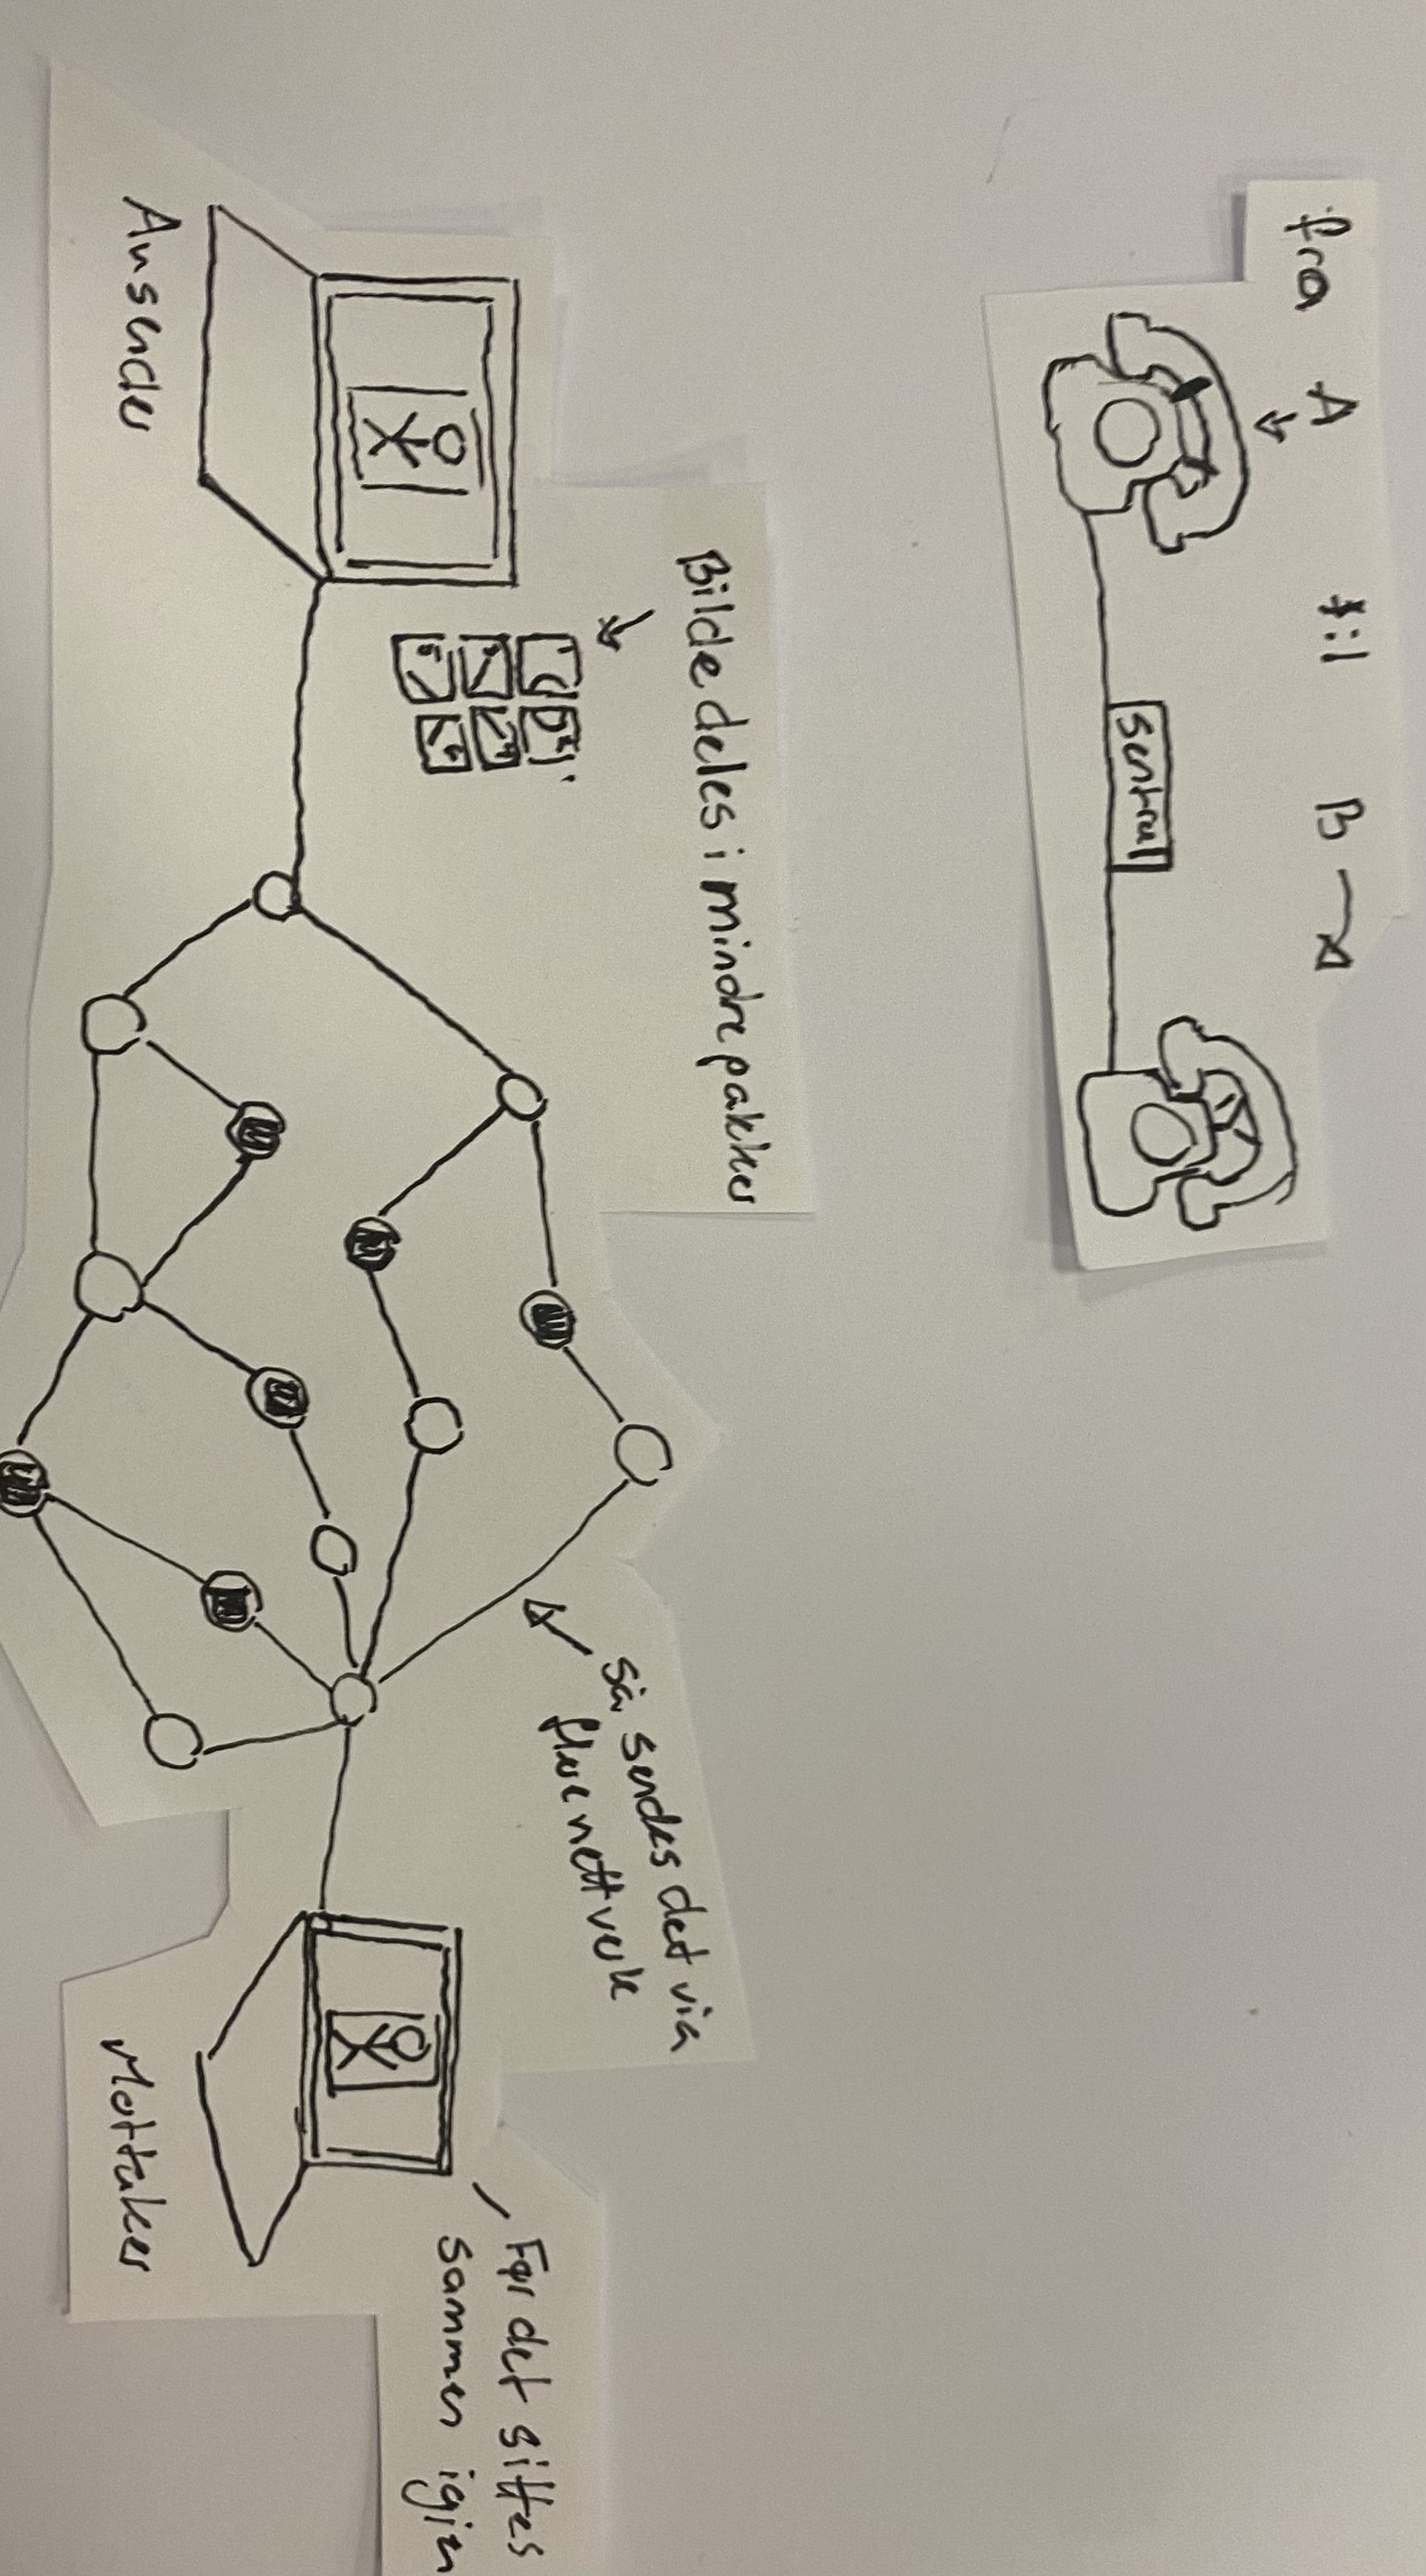 fra A til B
Sentral
Bilde deles i mindre pakker
Avsender
så sendes det via
flue nettverk
Før det sittes
sammen igien
Mottaker